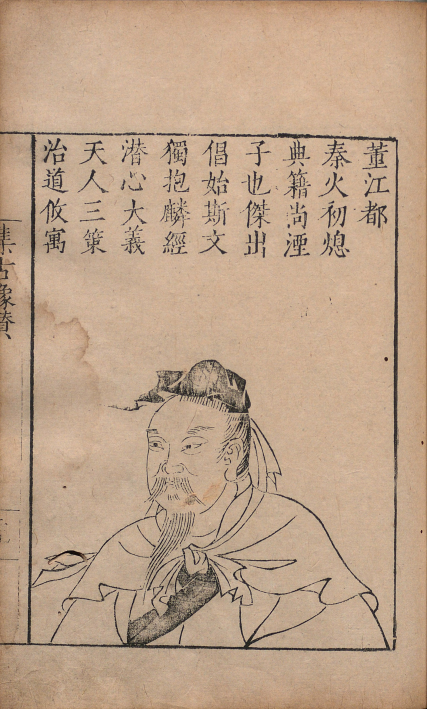 董江都
秦火初熄
典籍尚湮
子也傑出
倡始斯文
獨抱麟經
潜心大義
天人三策
治道攸寓
集古像贊